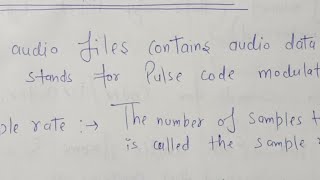 audio files contains audio data
stands for Pulse code modulat
ple rate :→ The number of samples t
is called the sample